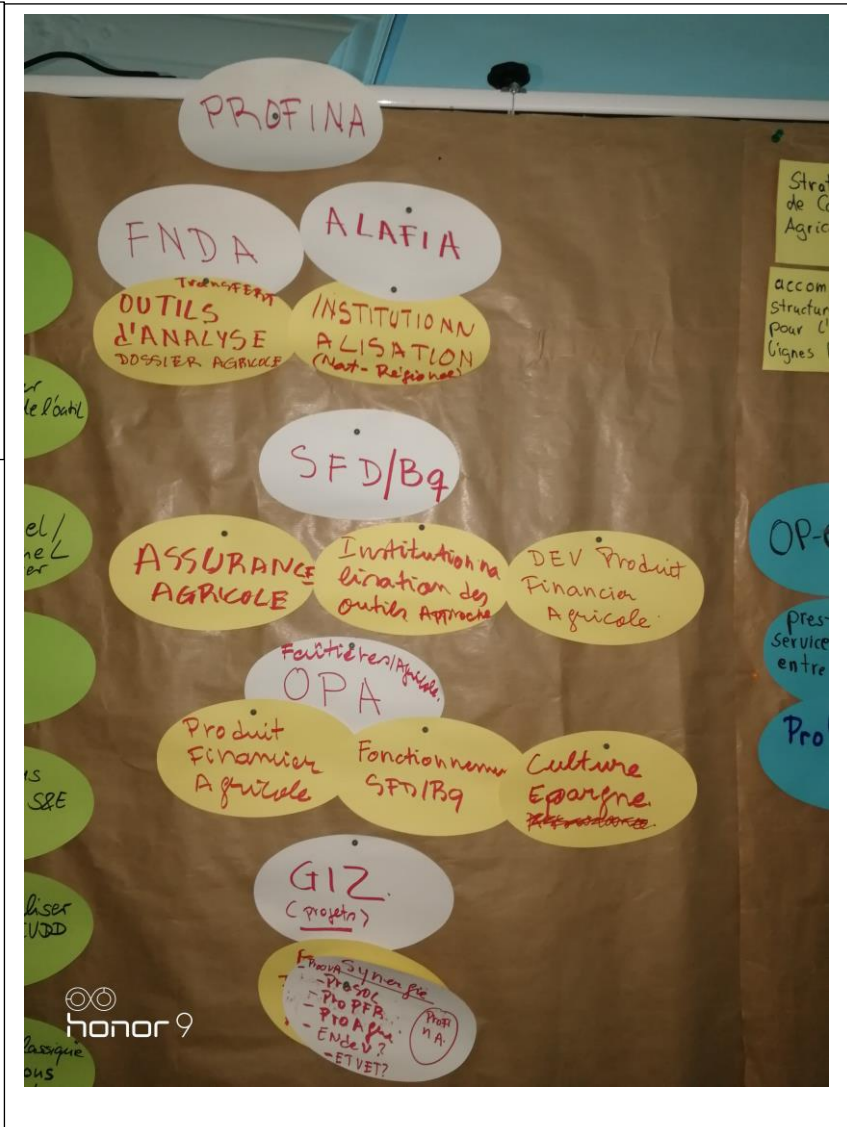 PROFINA
FNDA
ALAFIA
TRANSFERT
OUTILS
d'ANALYSE
DOSSIER AGRICOLE
INSTITUTIONN
ALISATION
(Nat- Régional)
SFD/Bq
ASSURANCE
AGRICOLE
Institutionna
lisation des
outils Approche
DEV Produit
Financier
Agricole
Faîtières/Agricole
OPA
Produit
Financier
Agricole
Fonctionnemen
SFD/Bq
Culture
Epargne
GIZ
(projets)
Synergie
- ProSOL
- ProPFR
- ProAgri
- ENDEV?
- ETVET?
Profi
nA.
Strat
de Co
Agric
accom
structur
pour l'
lignes
OP-
pres
service
entre
Pro
de l'outil
el/
S&E
liser
lassique
ous
honor 9